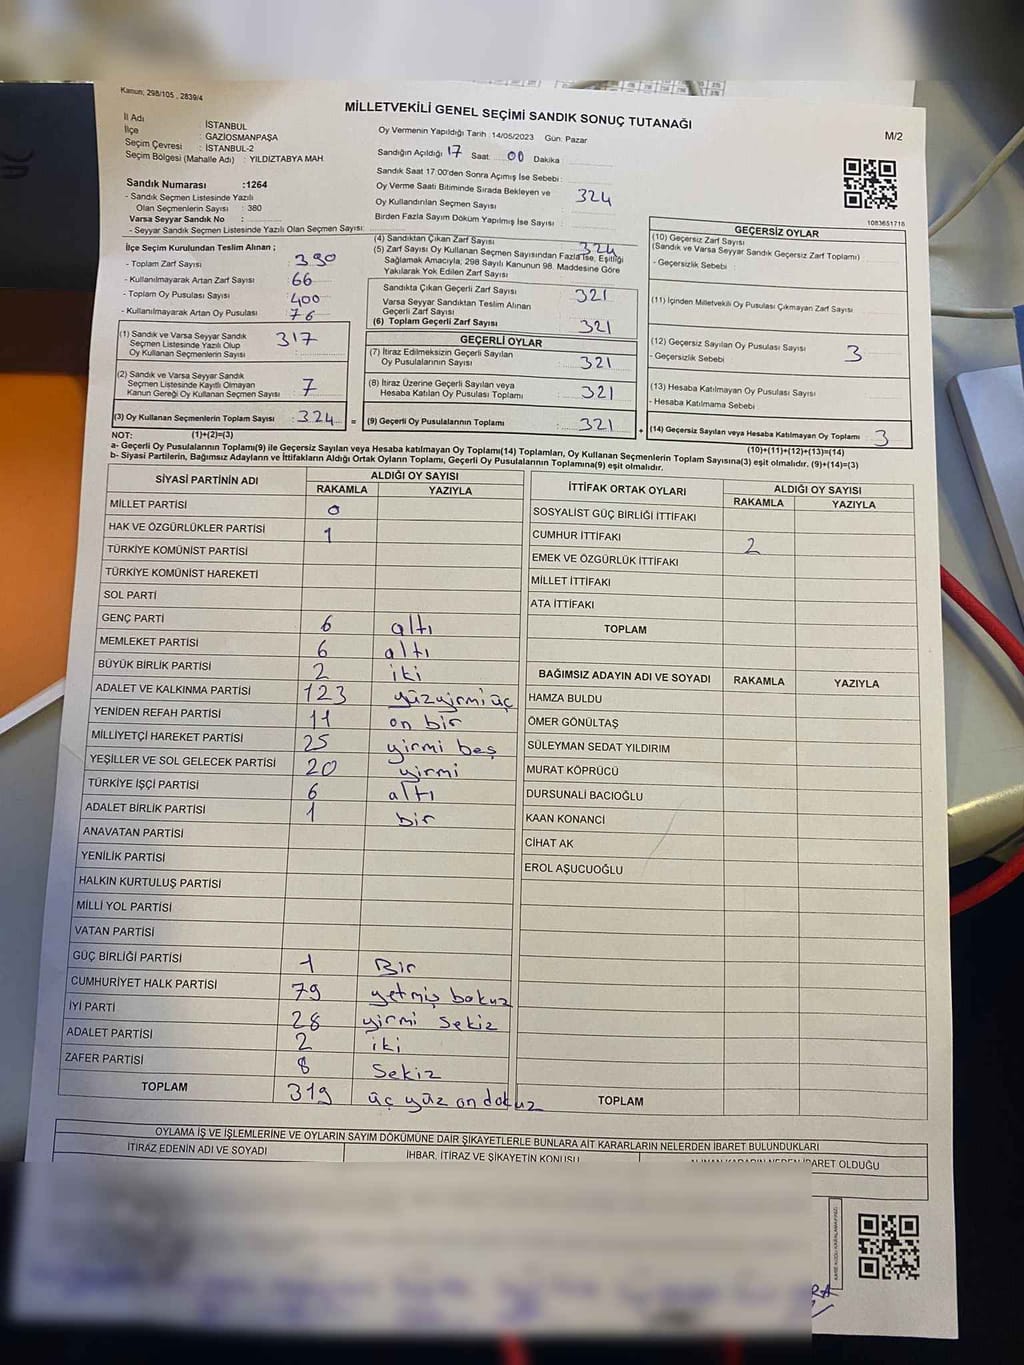 Kanun; 298/105 , 2839/4
MİLLETVEKİLİ GENEL SEÇİMİ SANDIK SONUÇ TUTANAĞI
M/2
İl Adı : İSTANBUL
İlçe : GAZİOSMANPAŞA
Seçim Çevresi : İSTANBUL-2
Seçim Bölgesi (Mahalle Adı) : YILDIZTABYA MAH.
Oy Vermenin Yapıldığı Tarih : 14/05/2023 Gün. Pazar
Sandığın Açıldığı 17 Saat 00 Dakika
Sandık Saat 17.00'den Sonra Açımış İse Sebebi :
Oy Verme Saati Bitiminde Sırada Bekleyen ve
Oy Kullandırılan Seçmen Sayısı : 324
Birden Fazla Sayım Döküm Yapılmış İse Sayısı :
1083651718
Sandık Numarası :1264
- Sandık Seçmen Listesinde Yazılı
Olan Seçmenlerin Sayısı : 380
Varsa Seyyar Sandık No :
- Seyyar Sandık Seçmen Listesinde Yazılı Olan Seçmen Sayısı:
İlçe Seçim Kurulundan Teslim Alınan ;
- Toplam Zarf Sayısı : 390
- Kullanılmayarak Artan Zarf Sayısı : 66
- Toplam Oy Pusulası Sayısı : 400
- Kullanılmayarak Artan Oy Pusulası : 76
(1) Sandık ve Varsa Seyyar Sandık
Seçmen Listesinde Yazılı Olup
Oy Kullanan Seçmenlerin Sayısı : 317
(2) Sandık ve Varsa Seyyar Sandık
Seçmen Listesinde Kayıtlı Olmayan
Kanun Gereği Oy Kullanan Seçmen Sayısı : 7
(3) Oy Kullanan Seçmenlerin Toplam Sayısı : 324 =
(4) Sandıktan Çıkan Zarf Sayısı : 324
(5) Zarf Sayısı Oy Kullanan Seçmen Sayısından Fazla İse, Eşitliği
Sağlamak Amacıyla, 298 Sayılı Kanunun 98. Maddesine Göre
Yakılarak Yok Edilen Zarf Sayısı
Sandıkta Çıkan Geçerli Zarf Sayısı : 321
Varsa Seyyar Sandıktan Teslim Alınan
Geçerli Zarf Sayısı
(6) Toplam Geçerli Zarf Sayısı : 321
GEÇERLİ OYLAR
(7) İtiraz Edilmeksizin Geçerli Sayılan
Oy Pusulalarının Sayısı : 321
(8) İtiraz Üzerine Geçerli Sayılan veya
Hesaba Katılan Oy Pusulası Toplamı : 321
(9) Geçerli Oy Pusulalarının Toplamı : 321 +
GEÇERSİZ OYLAR
(10) Geçersiz Zarf Sayısı
(Sandık ve Varsa Seyyar Sandık Geçersiz Zarf Toplamı)
- Geçersizlik Sebebi :
(11) İçinden Milletvekili Oy Pusulası Çıkmayan Zarf Sayısı
(12) Geçersiz Sayılan Oy Pusulası Sayısı 3
- Geçersizlik Sebebi
(13) Hesaba Katılmayan Oy Pusulası Sayısı
- Hesaba Katılmama Sebebi
(14) Geçersiz Sayılan veya Hesaba Katılmayan Oy Toplamı : 3
NOT: (1)+(2)=(3) (10)+(11)+(12)+(13)=(14)
a- Geçerli Oy Pusulalarının Toplamı(9) ile Geçersiz Sayılan veya Hesaba katılmayan Oy Toplamı(14) Toplamları, Oy Kullanan Seçmenlerin Toplam Sayısına(3) eşit olmalıdır. (9)+(14)=(3)
b- Siyasi Partilerin, Bağımsız Adayların ve İttifakların Aldığı Ortak Oyların Toplamı, Geçerli Oy Pusulalarının Toplamına(9) eşit olmalıdır.
SİYASİ PARTİNİN ADI ALDIĞI OY SAYISI
RAKAMLA YAZIYLA
MİLLET PARTİSİ 0
HAK VE ÖZGÜRLÜKLER PARTİSİ 1
TÜRKİYE KOMÜNİST PARTİSİ
TÜRKİYE KOMÜNİST HAREKETİ
SOL PARTİ
GENÇ PARTİ 6 altı
MEMLEKET PARTİSİ 6 altı
BÜYÜK BİRLİK PARTİSİ 2 iki
ADALET VE KALKINMA PARTİSİ 123 yüzyirmi üç
YENİDEN REFAH PARTİSİ 11 on bir
MİLLİYETÇİ HAREKET PARTİSİ 25 yirmi beş
YEŞİLLER VE SOL GELECEK PARTİSİ 20 yirmi
TÜRKİYE İŞÇİ PARTİSİ 6 altı
ADALET BİRLİK PARTİSİ 1 bir
ANAVATAN PARTİSİ
YENİLİK PARTİSİ
HALKIN KURTULUŞ PARTİSİ
MİLLİ YOL PARTİSİ
VATAN PARTİSİ
GÜÇ BİRLİĞİ PARTİSİ 1 Bir
CUMHURİYET HALK PARTİSİ 79 yetmiş bokuz
İYİ PARTİ 28 yirmi sekiz
ADALET PARTİSİ 2 iki
ZAFER PARTİSİ 8 Sekiz
TOPLAM 319 üç yüz on dokuz
İTTİFAK ORTAK OYLARI ALDIĞI OY SAYISI
RAKAMLA YAZIYLA
SOSYALİST GÜÇ BİRLİĞİ İTTİFAKI
CUMHUR İTTİFAKI 2
EMEK VE ÖZGÜRLÜK İTTİFAKI
MİLLET İTTİFAKI
ATA İTTİFAKI
TOPLAM
BAĞIMSIZ ADAYIN ADI VE SOYADI RAKAMLA YAZIYLA
HAMZA BULDU
ÖMER GÖNÜLTAŞ
SÜLEYMAN SEDAT YILDIRIM
MURAT KÖPRÜCÜ
DURSUNALİ BACIOĞLU
KAAN KONANCİ
CİHAT AK
EROL AŞUCUOĞLU
TOPLAM
OYLAMA İŞ VE İŞLEMLERİNE VE OYLARIN SAYIM DÖKÜMÜNE DAİR ŞİKAYETLERLE BUNLARA AİT KARARLARIN NELERDEN İBARET BULUNDUKLARI
İTİRAZ EDENİN ADI VE SOYADI İHBAR, İTİRAZ VE ŞİKAYETİN KONUSU ALINAN KARARIN NEDEN İBARET OLDUĞU